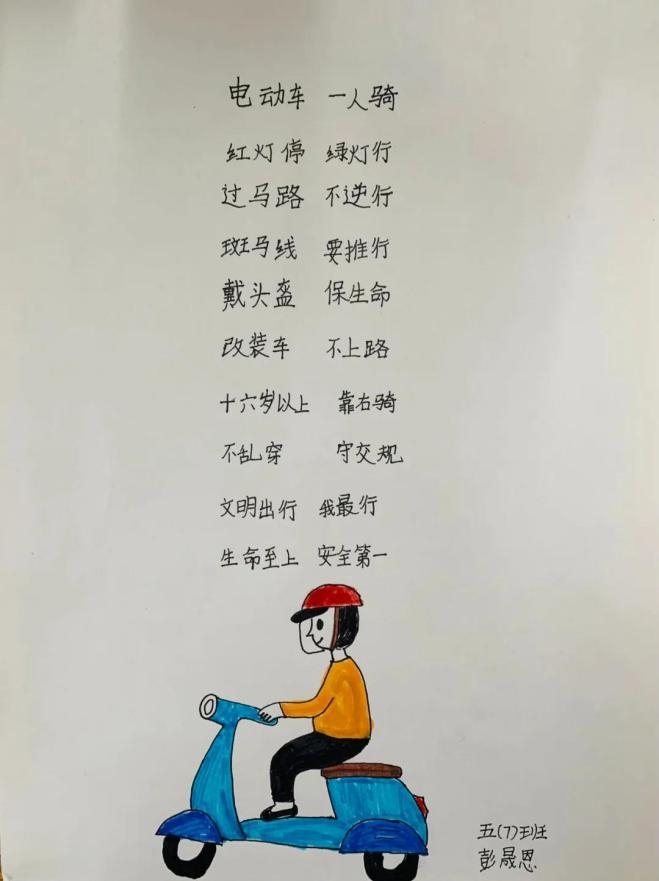 电动车 一人骑
红灯停 绿灯行
过马路 不逆行
斑马线 要推行
戴头盔 保生命
改装车 不上路
十六岁以上 靠右骑
不乱穿 守交规
文明出行 我最行
生命至上 安全第一
五(7)班
彭晟恩